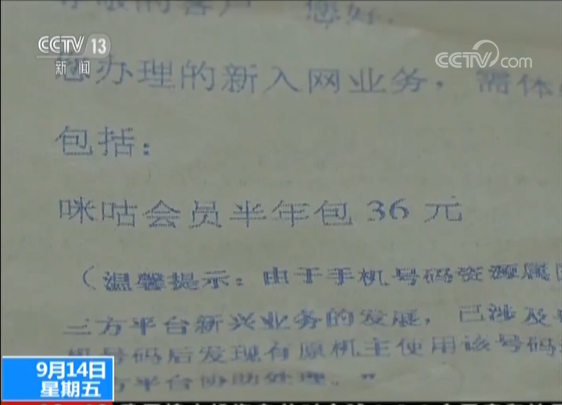 CCTV 13
新闻
CCTV.com
尊敬的客户 您好
您办理的新入网业务，需体
包括：
咪咕会员半年包 36 元
（温馨提示：由于手机号码资源属
三方平台新兴业务的发展，已涉及
机号码后发现有原机主使用该号码
方平台协助处理。"
9月14日
星期五